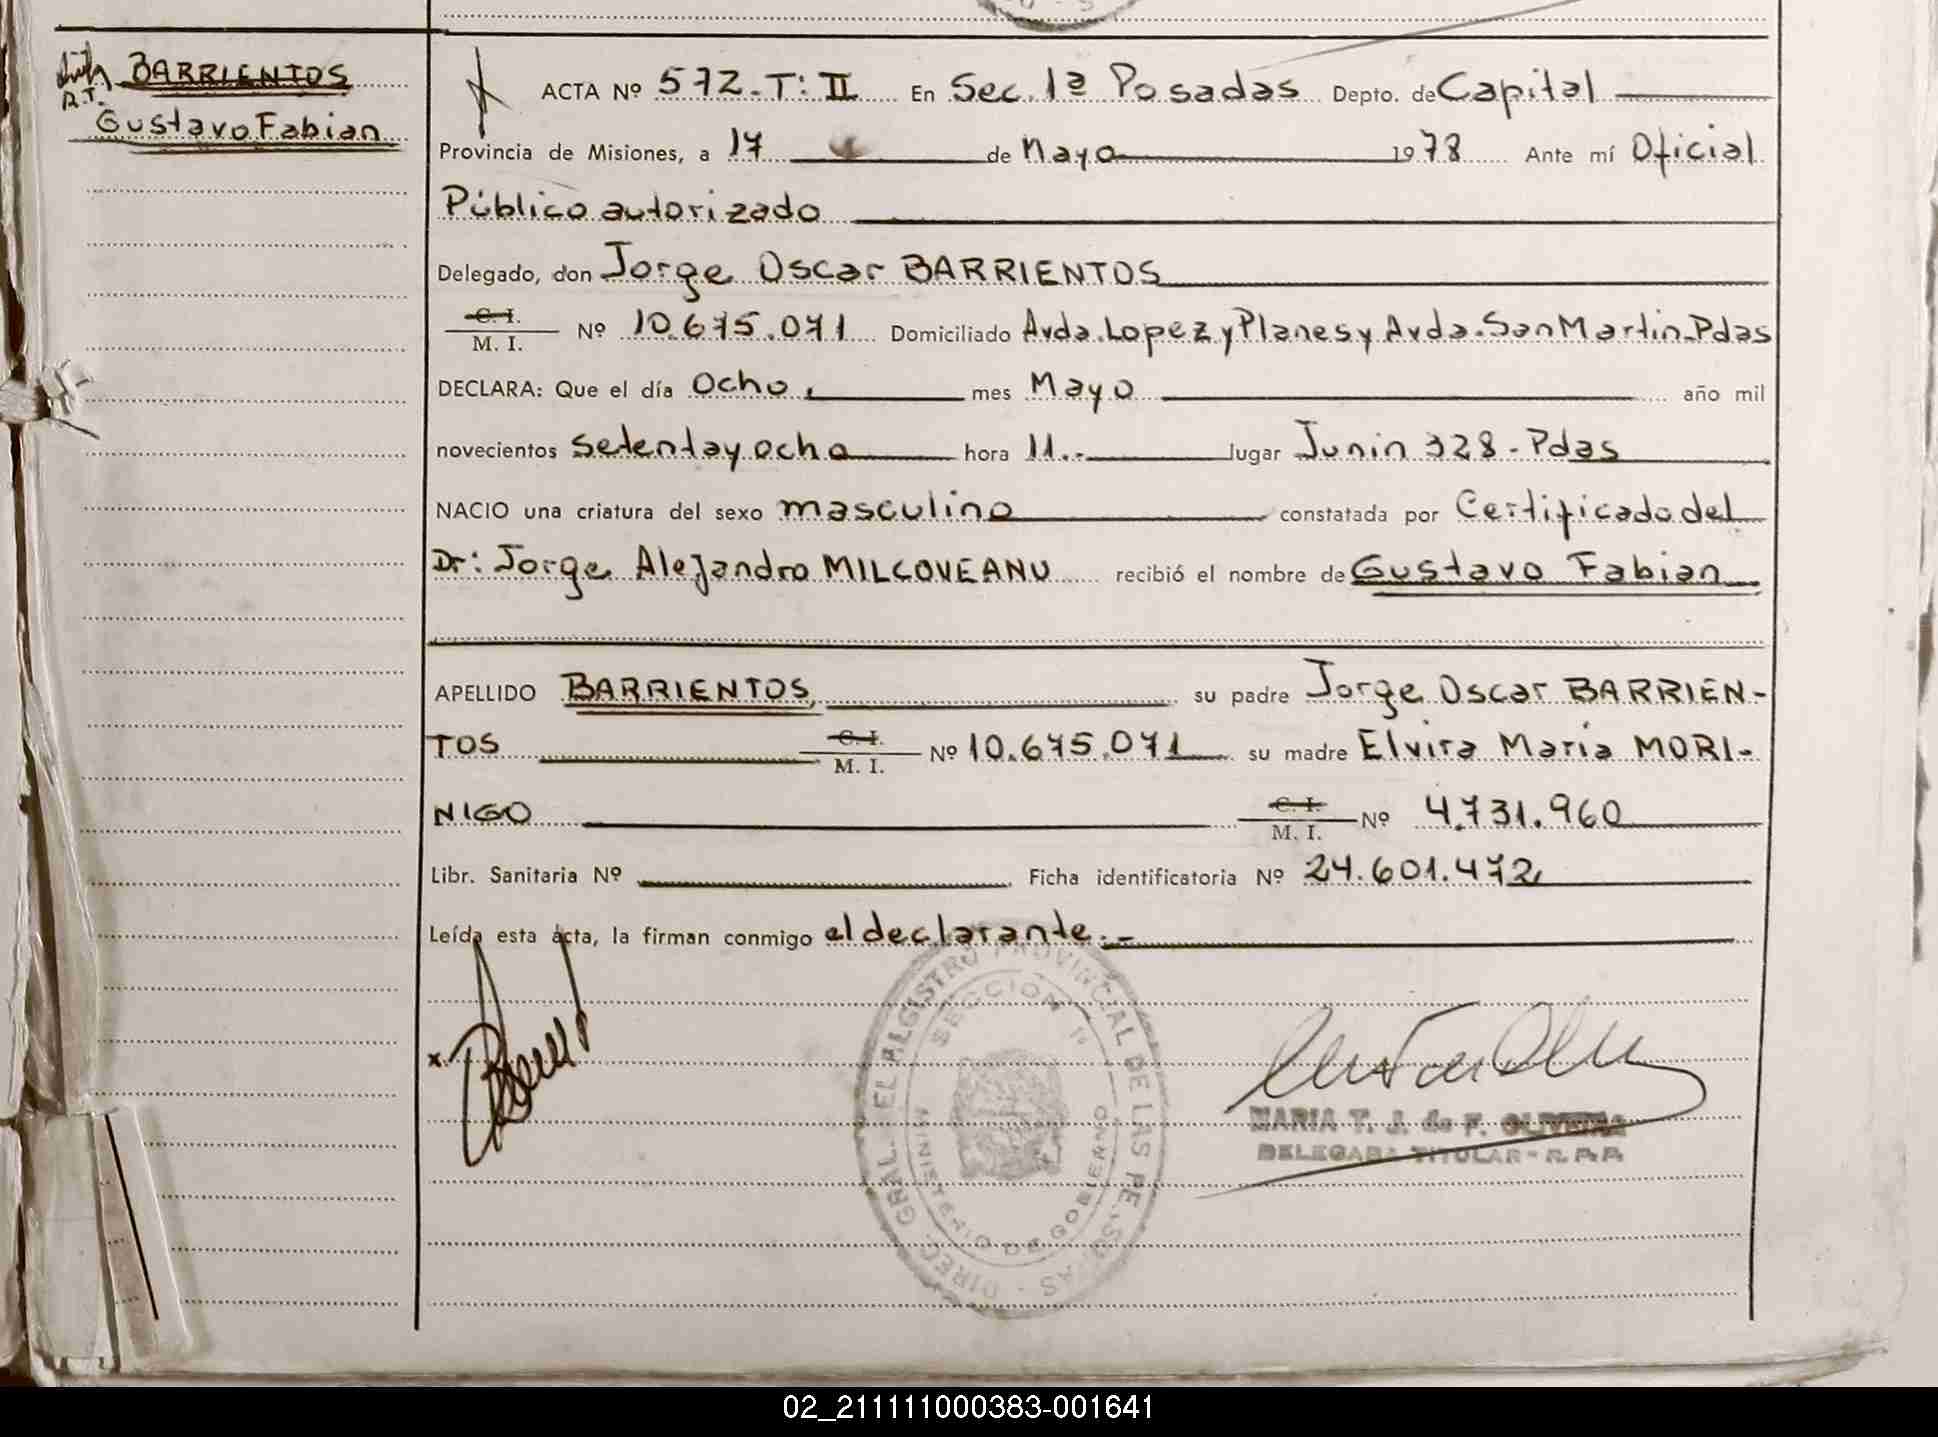 BARRIENTOS
R.T.
Gustavo Fabian
ACTA Nº 572.T:II En Sec. 1ª Posadas Depto. de Capital
Provincia de Misiones, a 17 de Mayo 1978 Ante mí Oficial
Público autorizado
Delegado, don Jorge Oscar BARRIENTOS
C. I.
M. I. Nº 10.675.071 Domiciliado Avda. Lopez y Planes y Avda. San Martin-Pdas
DECLARA: Que el día Ocho, mes Mayo año mil
novecientos setenta y ocho hora 11.- lugar Junin 328-Pdas
NACIO una criatura del sexo masculino constatada por Certificado del
Dr: Jorge Alejandro MILCOVEANU recibió el nombre de Gustavo Fabian
APELLIDO BARRIENTOS, su padre Jorge Oscar BARRIEN-
TOS C. I. M. I. Nº 10.675.071 su madre Elvira Maria MORI-
NIGO C. I. M. I. Nº 4.731.960
Libr. Sanitaria Nº Ficha identificatoria Nº 24.601.472
Leída esta acta, la firman conmigo el declarante.-
x
SECCION 1ª
MINISTERIO DE GOBIERNO
MARIA T. J. de F. OLIVEIRA
DELEGADA TITULAR - R. P. P.
02_211111000383-001641